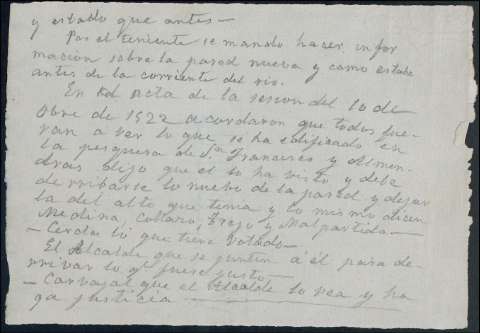 y estado que antes—
Por el teniente se mando hacer infor
mación sobre la pared nueva y como estaba
antes de la corriente del rio.
En acta de la sesion del 10 de
Obre de 1522 acordaron que todos fue-
ran a ver lo que se ha edificado en
la pesquera de Sn Francisco y Almen-
dras dijo que el lo ha visto y debe
derribarse lo nuevo de la pared y dejar
la del alto que tenia y lo mismo dicen
Medina, Collazo, Trejo y Malpartida—
— Cerda lo que tiene votado—
El Alcalde que se junten a él para de-
rrivar lo q. fuese justo—
— Carvajal que el Alcalde lo vea y ha
ga justicia —